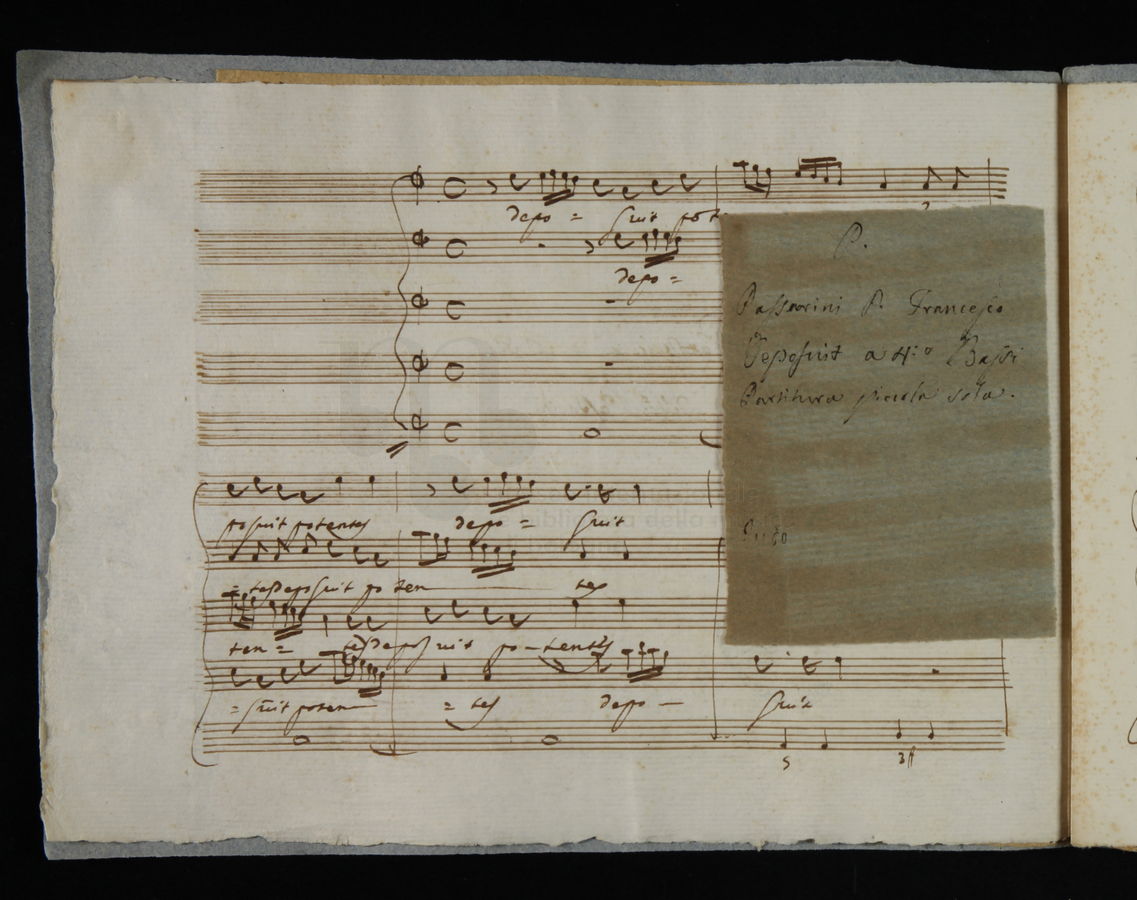 depo = suit pot
depo =
P.
Passarini P. Francesco
Deposuit a 4.º Bassi
Partitura picola sola.
posuit potentes depo = suit
= tes deposuit po ten tes
ten = tes Deposuit po - tentes
= suit poten = tes depo - suit
5 3#